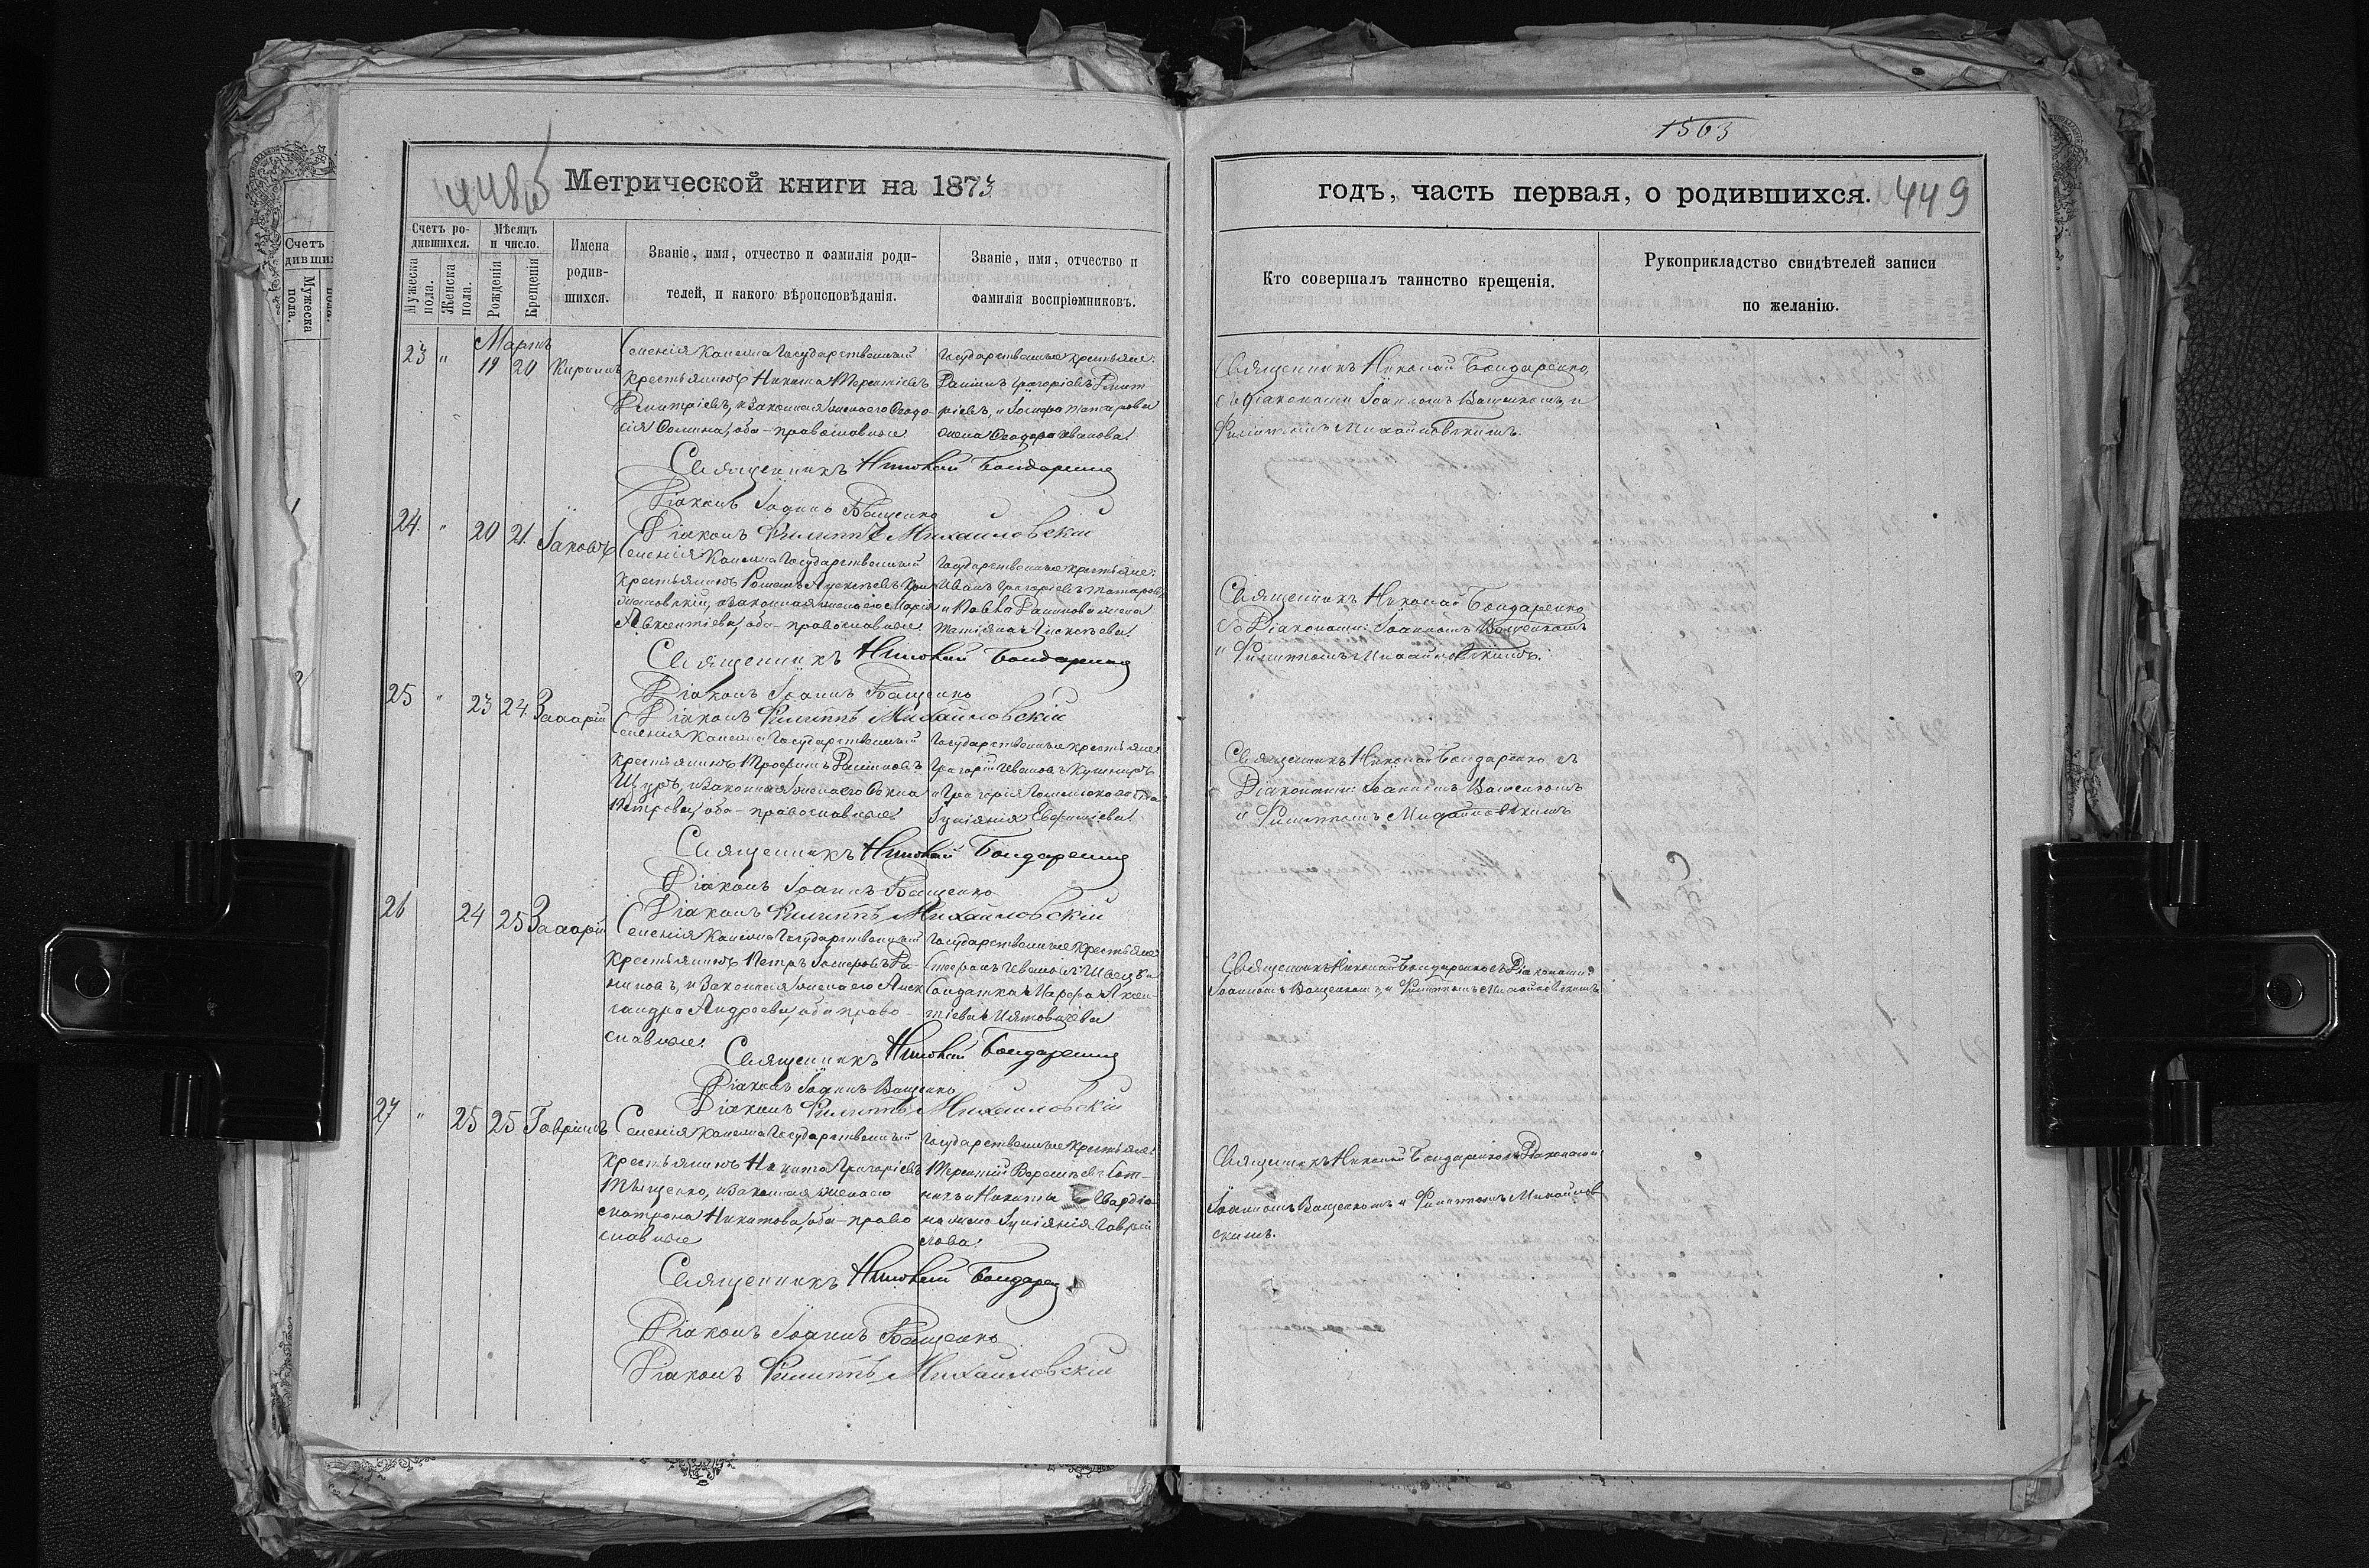 448 об
Метрической книги на 1873
Счетъ ро-
дившихся.
Мужеска пола.
Женска пола.
Мѣсяцъ
и число.
Рожденія
Крещенія
Имена
родив-
шихся.
Званіе, имя, отчество и фамилія роди-
телей, и какого вѣроисповѣданія.
Званіе, имя, отчество и
фамилія воспріомниковъ.
Мартъ
23 " 19 20 Кириллъ
Селенія Каменна Государственный
крестьянинъ Никита Терентіевъ
Димитріевъ, и законная жена его Ѳеодо-
сія Ѳомина, оба православные.
Государственные крестьяне:
Григоріевъ Димит-
ріевъ, и
жена Ѳеодора Иванова.
Священникъ Николай Бондаренко
Діаконъ Іоаннъ Ващенко
Діаконъ Филиппъ Михайловскій
24. " 20 21. Іаковъ
Селенія Каменна Государственный
крестьянинъ Романъ Алексѣевъ
и законная жена его Марія
Авксентіева, оба православные.
Государственные крестьяне:
Иванъ Григоріевъ
и Павла жена
Татіяна Алексѣева.
Священникъ Николай Бондаренко
Діаконъ Іоаннъ Ващенко
Діаконъ Филиппъ Михайловскій
25 " 23 24. Захарій
Селенія Каменна Государственный
крестьянинъ Трофимъ
Щуръ, и законная жена его
Петрова, оба православные.
Государственные крестьяне:
Григорій Ивановъ Кушниръ
и Григорія жена
Іуліянія Евфиміева.
Священникъ Николай Бондаренко
Діаконъ Іоаннъ Ващенко
Діаконъ Филиппъ Михайловскій
26 24 25 Захарій
Селенія Каменна Государственный
крестьянинъ Петръ Да-
ниловъ, и законная жена его Алек
сандра Андреева, оба право
славные.
Государственные крестьяне:
Стефанъ Ивановъ Швецъ и
Солдатка Марѳа Авксен-
тіева
Священникъ Николай Бондаренко
Діаконъ Іоаннъ Ващенко
Діаконъ Филиппъ Михайловскій
27 " 25 25 Гавріилъ
Селенія Каменна Государственный
крестьянинъ Никита Григоріевъ
Тищенко, и законная жена его
Матрона Никитова, оба право
славные
Государственные крестьяне:
Терентій
и Никиты
жена Іуліянія Гаврии
лова.
Священникъ Николай Бондаренко
Діаконъ Іоаннъ Ващенко
Діаконъ Филиппъ Михайловскій
1563
годъ, часть первая, о родившихся.
449
Кто совершалъ таинство крещенія.
Рукоприкладство свидѣтелей записи
по желанію.
Священникъ Николай Бондаренко,
съ Діаконами Іоанномъ Ващенкомъ, и
Филиппомъ Михайловскимъ.
Священникъ Николай Бондаренко
съ Діаконами: Іоанномъ Ващенкомъ
и Филиппомъ Михайловскимъ.
Священникъ Николай Бондаренко съ
Діаконами: Іоанномъ Ващенкомъ
и Филиппомъ Михайловскимъ
Священникъ Николай Бондаренко съ Діаконами:
Іоанномъ Ващенкомъ, и Филиппомъ Михайловскимъ
Священникъ Николай Бондаренко съ Діаконами:
Іоанномъ Ващенкомъ и Филиппомъ Михайлов
скимъ.
Счетъ
дивших
Мужеска пола.
1
2